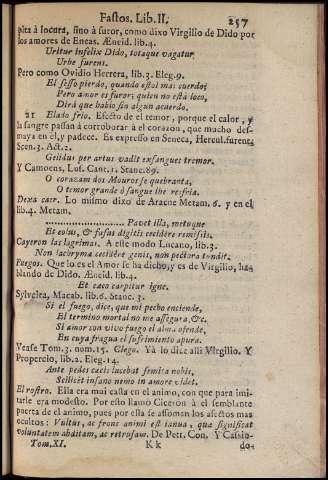 Fastos. Lib. II. 257
pita à locura, sino à furor, como dixo Virgilio de Dido por
los amores de Eneas. Æneid. lib.4.
Uritur infelix Dido, totaque vagatur
Urbe furens.
Pero como Ovidio Herrera, lib.3. Eleg.9.
El sesso pierdo, quando estoi mas cuerdo;
Pero amor es furor; quien no està loco,
Dirà que hablo sin algun acuerdo.
21 Elado frio. Efecto de el temor, porque el calor, y
la sangre passan à corroborar à el corazon, que mucho des-
maya en el, y padece. Es expresso en Seneca, Hercul.furent.
Scen.3. Act.2.
Gelidus per artus vadit exsangues tremor.
Y Camoens, Lus. Cant.1. Stanc.89.
O corazam dos Mouros se quebranta,
O temor grande ò sangue lhe resfria.
Dexa caer. Lo mismo dixo de Aracne Metam.6. y en el
lib.4. Metam.
.............................. Pavet illa, metuque
Et colus, & fusus digitis cecidère remissis.
Cayeron las lagrimas. A este modo Lucano, lib.3.
Non lacryma cecidère genis, non pectora tundit.
Fuegos. Que lo es el Amor se ha dicho, y es de Virgilio, ha-
blando de Dido. Æneid. lib.4.
Et cæco carpitur igne.
Sylveira, Macab. lib.6. Stanc.3.
Si el fuego, dice, que mi pecho enciende,
El termino mortal no me assegura, &c.
Si amor con vivo fuego el alma ofende,
En cuya fragua el sufrimiento apura.
Vease Tom.3. nom.15. Ciego. Yà lo dice alli Virgilio. Y
Propercio, lib.2. Eleg.14.
Ante pedes cæcis lucebat semita nobis,
Scilicèt insano nemo in amore videt.
El rostro. Ella era mui casta en el animo, con que para imi-
tarle era modesto. Por esto llamó Ciceròn à el semblante
puerta de el animo, pues por ella se assoman los afectos mas
ocultos: Vultus, ac frons animi est ianua, quæ significat
voluntatem abditam, ac retrusam. De Pett. Con. Y Cassio-
Tom.XI. Kk do-